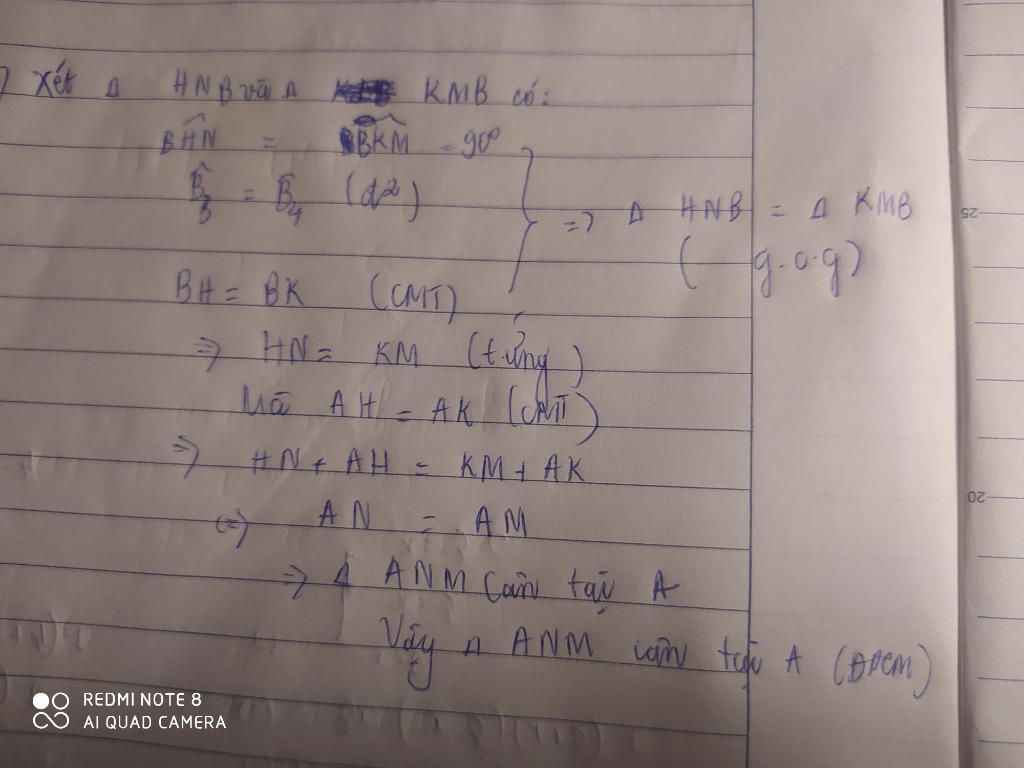 ) Xét Δ HNB và Δ KMB có:
BHN = BKM = 90°
B̂3 = B̂4 (đ²)
=> Δ HNB = Δ KMB
(g.c.g)
BH = BK (CMT)
=> HN = KM (t.ứng)
Mà AH = AK (CMT)
=> HN + AH = KM + AK
(=) AN = AM
=> Δ ANM cân tại A
Vậy Δ ANM cân tại A (ĐPCM)
25
20
REDMI NOTE 8
AI QUAD CAMERA